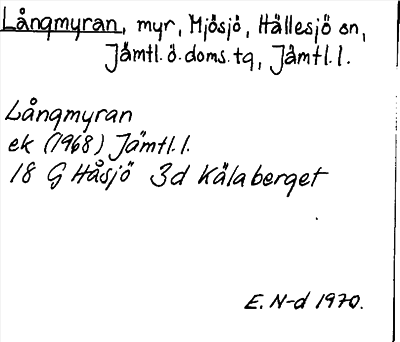 Långmyran, myr, Mjösjö, Hällesjö sn,
Jämtl. ö. doms. tg, Jämtl. l.
Långmyran
ek (1968) Jämtl. l.
18 G Håsjö 3d Kälaberget
E. N-d 1970.